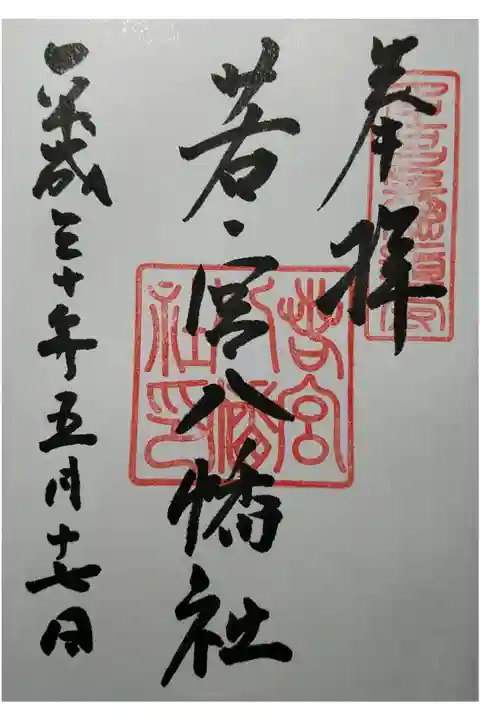 奉拝
若宮八幡社
若宮八幡社印
平成三十年五月十七日